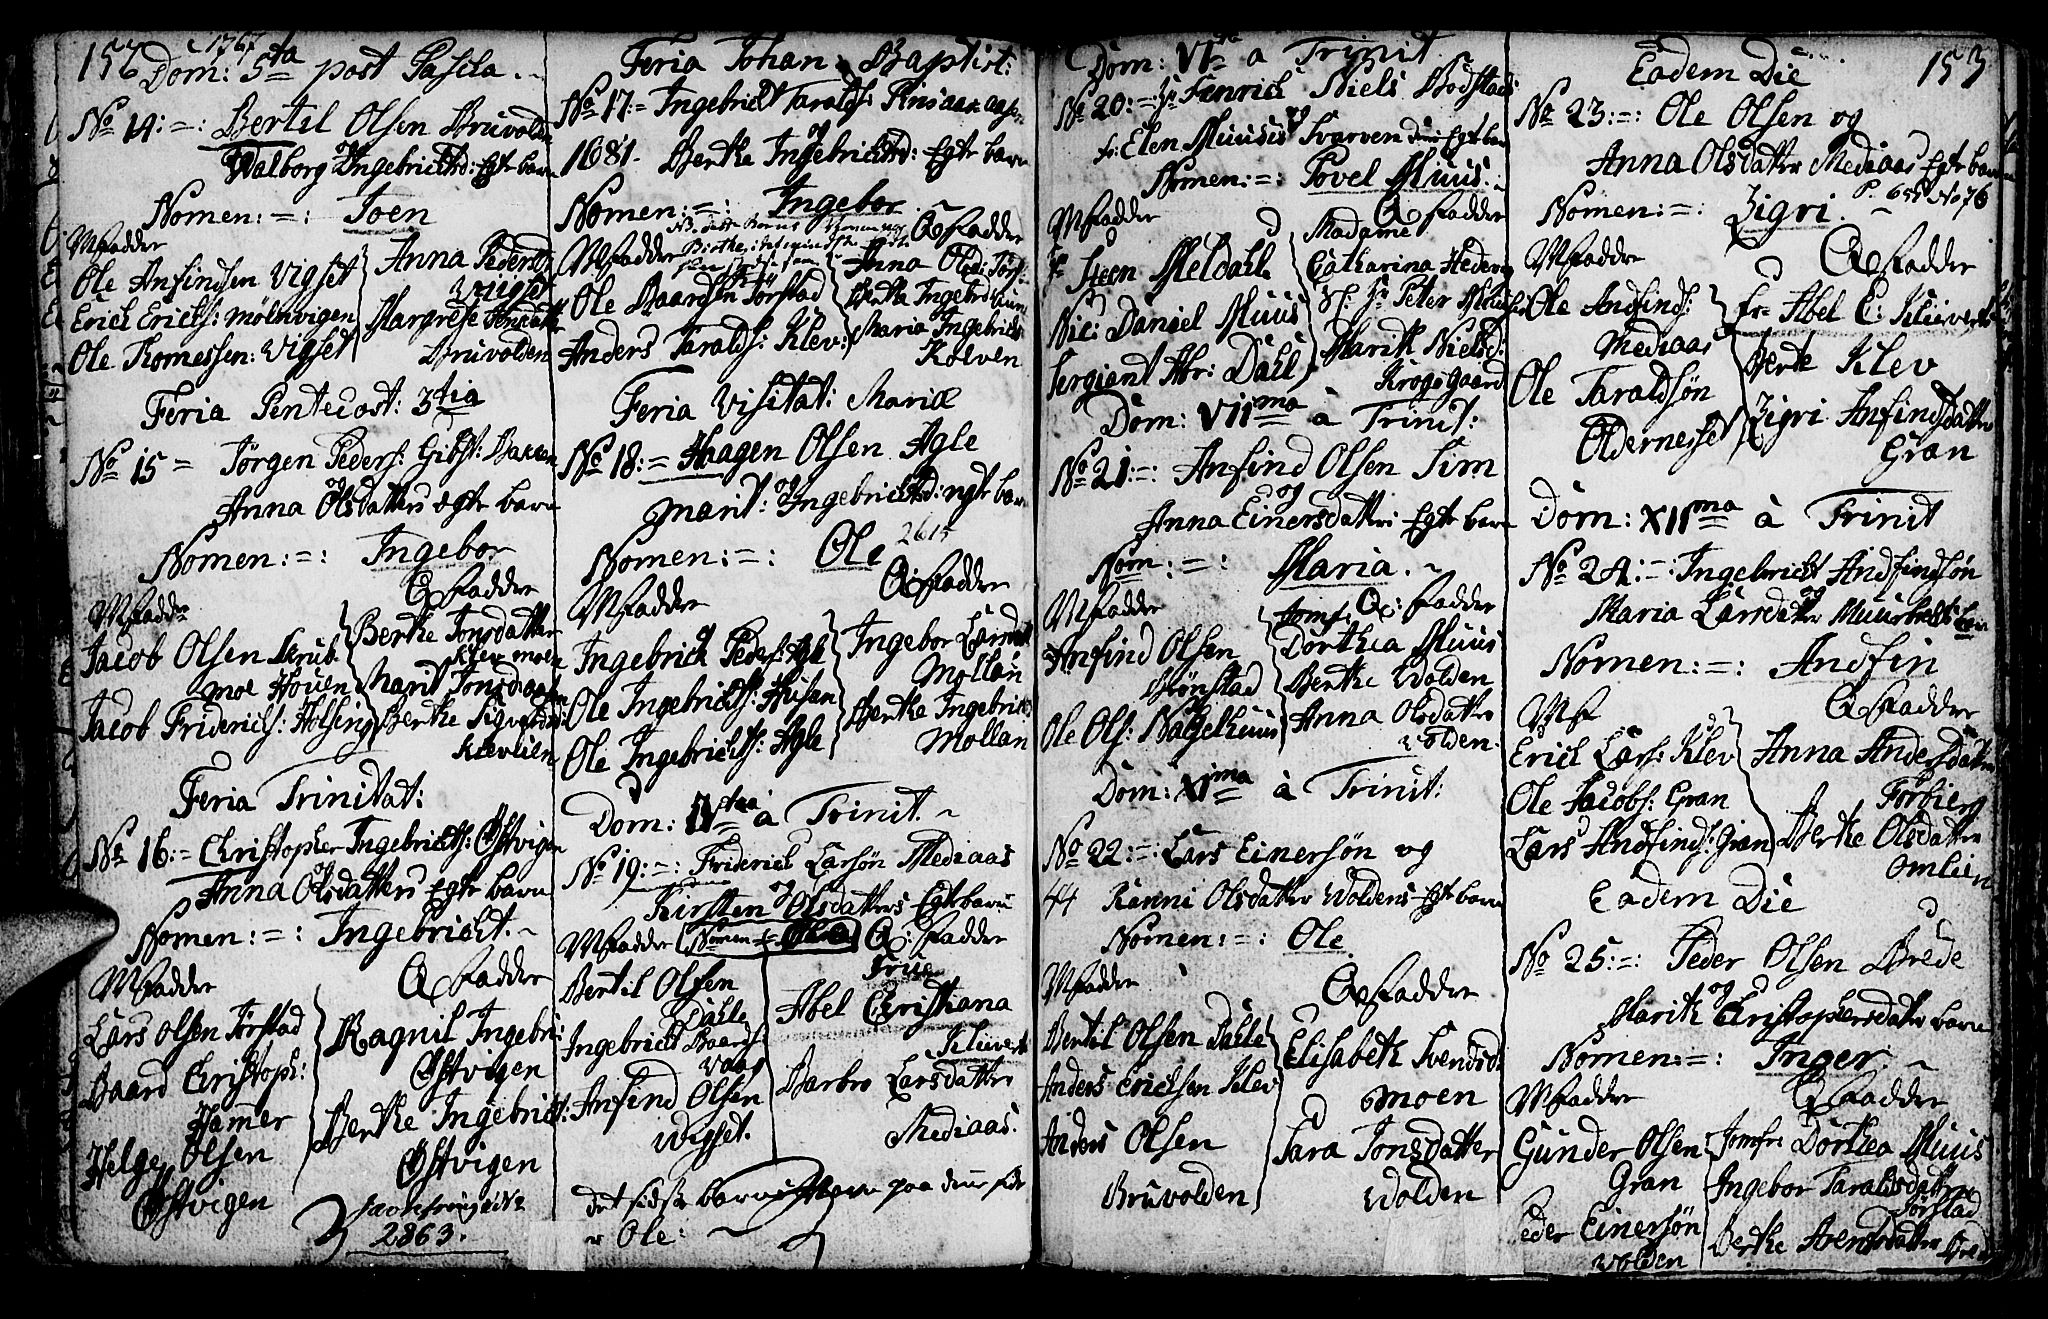 152 1767
Dom: 5ta post Pascha
No 14:=: Bertil Olsen Bruvolden
og
Walborg Ingebrichtsd: Egte barn
Nomen:=: Joen
MFadder
Ole Anfindsen Vigset
Erich Erichs: Mölnvigen
Ole Thomessen: Vigset
Anna Pedersd:
Vigset
Margrete
Bruvolden
Feria Pentecost: 3tia
No 15 = Jörgen Peders: Gibst: Bakken
og
Anna Olsdatters ægte barn
Nomen:=: Ingebor
QFadder
MFadder
Jacob Olsen
moe Houen
Jacob Friderichs: Holsing
Berthe Jonsdatter
Klev moen
Marit Jonsdatter
Berthe
Klevlien
Feria Trinitat:
No 16:= Christopher Ingebrichts: Østvigen
og
Anna Olsdatters Egte barn
Nomen:=: Ingebricht.
MFadder
QFadder
Lars Olsen Törstad
Baard Christoph:
Hamer
Helge Olsen
Østvigen
Ragnil Ingebri:
Østvigen
Berthe Ingebricht:
Østvigen
2863.
Feria Johan: Baptist:
No 17:= Ingebricht Taralds:
og
1681. Berthe Ingebrichtsd: Egte barn
Nomen:=: Ingebor
MFadder
QFadder
Ole Baardsen Törstad
Anders Taralds: Klev:
Anna Olsd: Törst
Berthe Ingebrichtsd
Maria Ingebrichts
Kolven
Feria Visitat: Mariæ
No 18:= Haagen Olsen Agle
og
Marit: Ingebrichtsd: egte barn
Nomen:=: Ole 2615
MFadder
QFadder
Ingebricht Peders: Agl
Ole Ingebrichts: Husan
Ole Ingebrichts: Agle
Ingebor Larsdatt
Mollan
Berthe Ingebrichts
Mollan
Dom: IVta à Trinit.
No 19:=: Friderich Larsön Mediaas
og
Kirsten Olsdatters Egte barn
MFadder Nomen:=: Q: Fadder
Bertil Olsen
Dahle
Ingebricht Baards:
Vaag
Anfind Olsen
Wigset.
Frue
Abel Christiana
Kluwer
Barbro Larsdatter
Mediaas.
det sidste barns Nom paa denne side
er Ole:
Dom: VIta a Trinit
No 20:= Hr Henrich Niels Bodstads
og
fr: Elen Muusis Svarven Egte barn
Nomen:=: Povel Muus.
MFadder
QFadder
Hr Steen Meldahl
Nic: Daniel Muus
Sergiant Abr: Dahl
Madame
Catharina Hedevig
Sl: Hr Peter
Marith Nielsd:
Krogsgaard
Dom: VIIma à Trinit:
No 21:=: Anfind Olsen Sim
og
Anna Einersdatter Egte barn
Nom:=: Maria.
MFadder
Q: Fadder
Anfind Olsen
Grönstad
Ole Ols: Nagelhuus
Jomf:
Dorthea Muus
Berthe Wolden
Anna Olsdatter
Volden.
Dom: XIma à Trinit:
No 22:=: Lars Einersön og
44 Karen Olsdatter Woldens Egte barn
Nomen:=: Ole
MFadder
QFadder
Bertil Olsen Dahle
Anders Erichsen Klev
Anders Olsen
Bruvolden
Elisabeth Svendsd:
Moen
Sara Jonsdatter
Wolden
Eadem Die 153
No 23:=: Ole Olsen og
Anna Olsdatter Mediaas Egte barn
Nomen:=: Zigri. P. 655 No 76
MFadder
QFadder
Ole Andfinds:
Mediaas
Ole Taraldsön
Oldernesset
fr Abel C: Kluwert
Berte Klev
Zigri Anfindsdatter
Gran
Dom: XIIma à Trinit
No 24:=: Ingebricht Andfindsön
og
Maria Larsdatter
Nomen:=: Andfin
MF
QFadder
Erich Lars: Klev
Ole Jacobs: Gran
Lars Andfinds: Gran
Anna Andersdatter
Forbierg
Berthe Olsdatter
Omlien
Eadem Die
No 25:=: Peder Olsen Brede
og
Marith Christophersdatter barn
Nomen:=: Inger
MFadder
QFadder
Gunder Olsen
Gran
Peder Einersön
Volden
Jomfr: Dorthea Muus
Ingebor Taraldsdatter
Törstad
Berthe Arentsdatter Brede